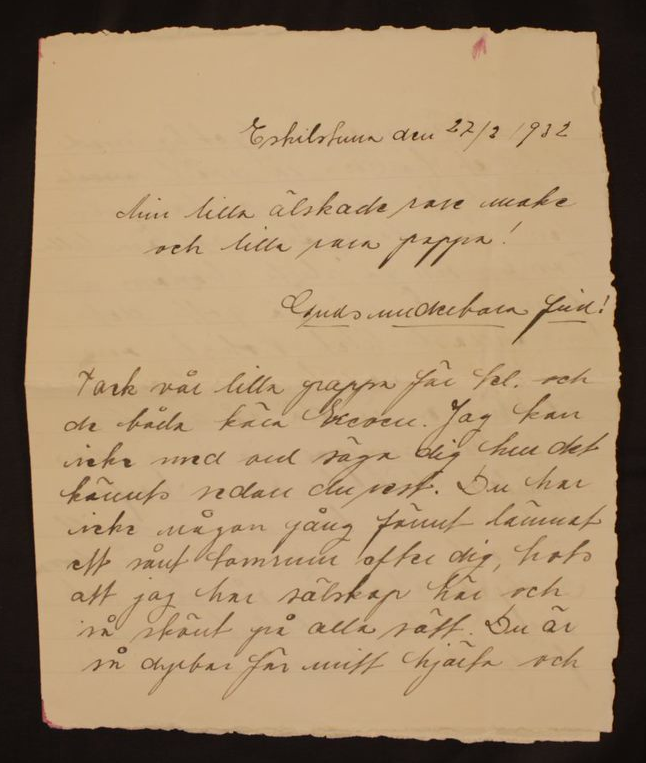 Eskilstuna den 27/2 1932
Min lilla älskade rare make
och lilla rara pappa!
Guds underbara frid!
Tack vår lilla pappa för tel. och
de båda kära breven. Jag kan
icke med ord säga dig hur det
känts sedan du rest. Du har
icke någon gång förut lämnat
ett sånt tomrum efter dig, trots
att jag har sälskap här och
så skönt på alla sätt. Du är
så dyrbar för mitt hjärta och